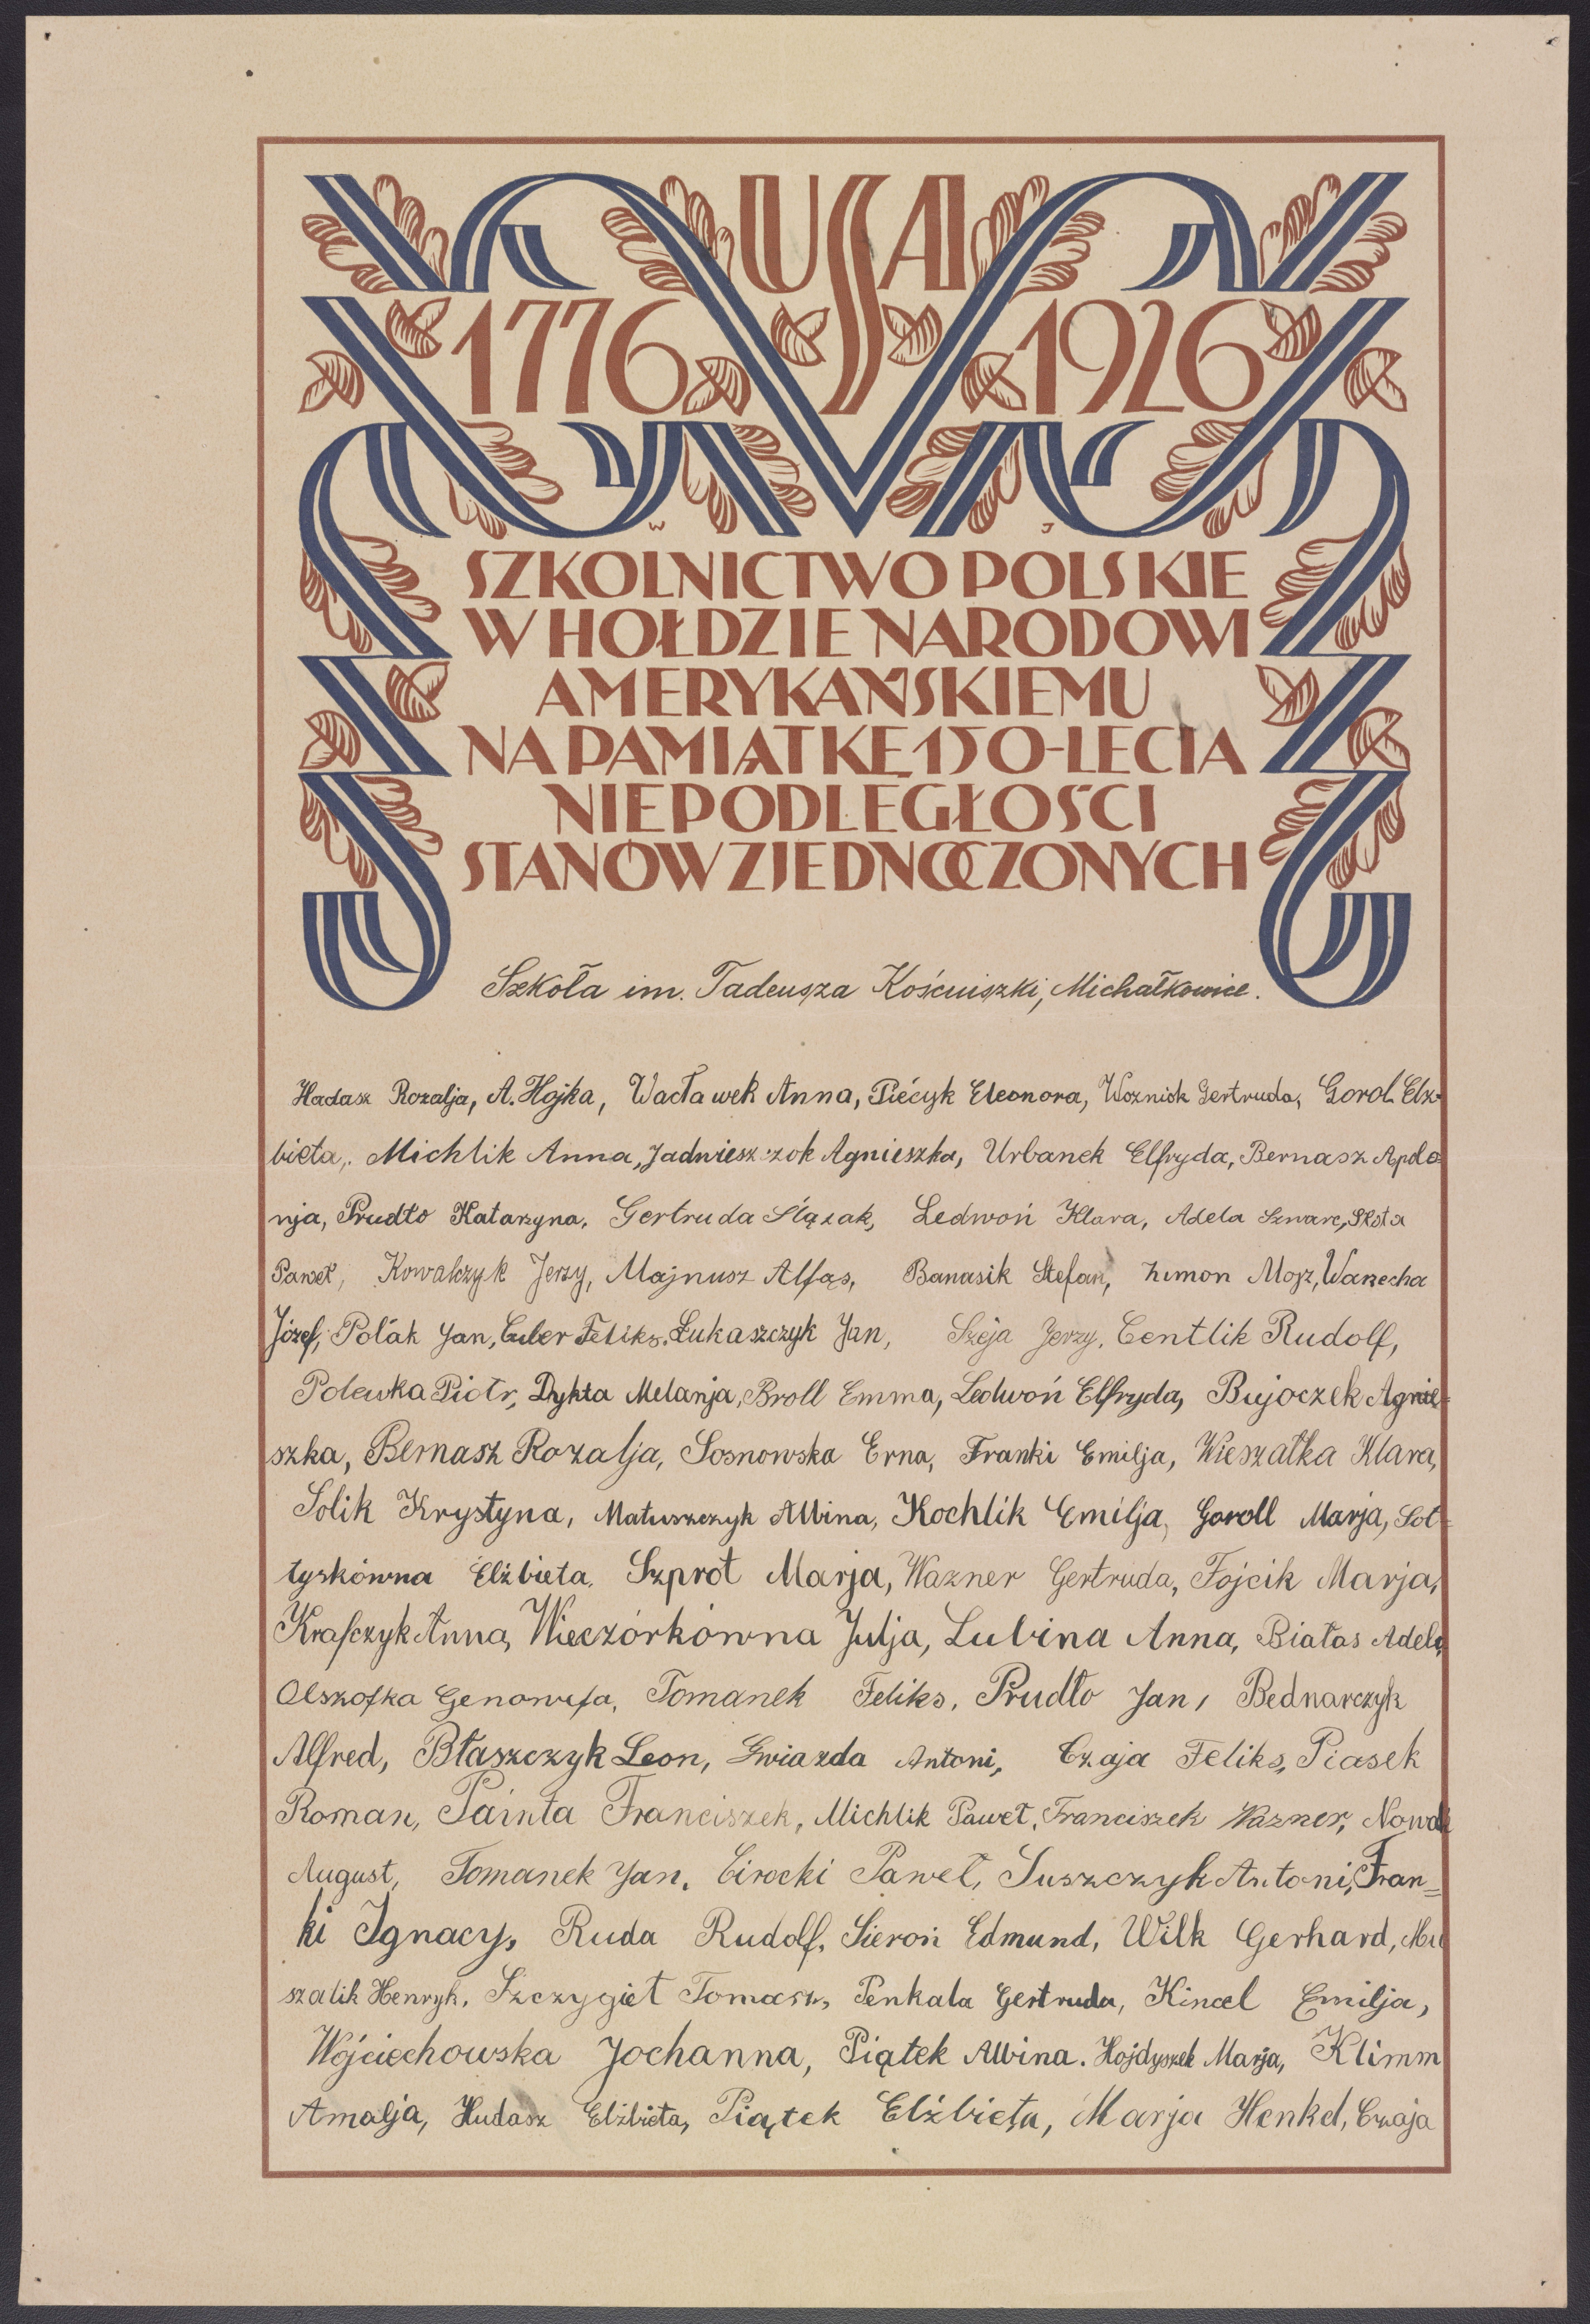 USA
1776 1926
W J
SZKOLNICTWO POLSKIE
W HOŁDZIE NARODOWI
AMERYKAŃSKIEMU
NA PAMIĄTKĘ 150-LECIA
NIEPODLEGŁOŚCI
STANÓW ZJEDNOCZONYCH
Szkoła im. Tadeusza Kościuszki, Michałkowice.
Hadasz Rozalja, A. Hojka, Wacławek Anna, Piécyk Eleonora, Wozniok Gertruda, Gorol Elz-
bieta, Michlik Anna, Jadwieszczok Agnieszka, Urbanek Elfryda, Bernasz Apolo-
nja, Prudło Katarzyna, Gertruda Ślązak, Ledwoń Klara, Adela Szwarc, Skóta
Paweł, Kowalczyk Jerzy, Majnusz Alfąs, Banasik Stefan, Zimon Mojz, Warzecha
Józef, Polák Jan, Cuber Feliks, Łukaszczyk Jan, Szeja Jerzy, Centlik Rudolf,
Polewka Piotr, Dykta Melanja, Broll Emma, Ledwoń Elfryda, Bujoczek Agnie-
szka, Bernasz Rozalja, Sosnowska Erna, Franki Emilja, Wieszałka Klara,
Solik Krystyna, Matuszczyk Albina, Kochlik Emilja, Goroll Marja, Soł-
tyskówna Elżbieta, Szprot Marja, Wazner Gertruda, Fojcik Marja,
Krafczyk Anna, Wieczórkówna Julja, Lubina Anna, Białas Adela,
Olszofka Genowefa, Tomanek Feliks, Prudło Jan, Bednarczyk
Alfred, Błaszczyk Leon, Gwiazda Antoni, Czaja Feliks, Piasek
Roman, Painta Franciszek, Michlik Paweł, Franciszek Wazner, Nowak
August, Tomanek Jan, Cirocki Paweł, Suszczyk Antoni, Fran=
ki Ignacy, Ruda Rudolf, Sieroń Edmund, Wilk Gerhard, Mu
szalik Henryk, Szczygieł Tomasz, Penkala Gertruda, Kincel Emilja,
Wojciechowska Jochanna, Piątek Albina, Hojdyszek Marja, Klimm
Amalja, Hudasz Elżbieta, Piątek Elżbieta, Marja Henkel, Czaja